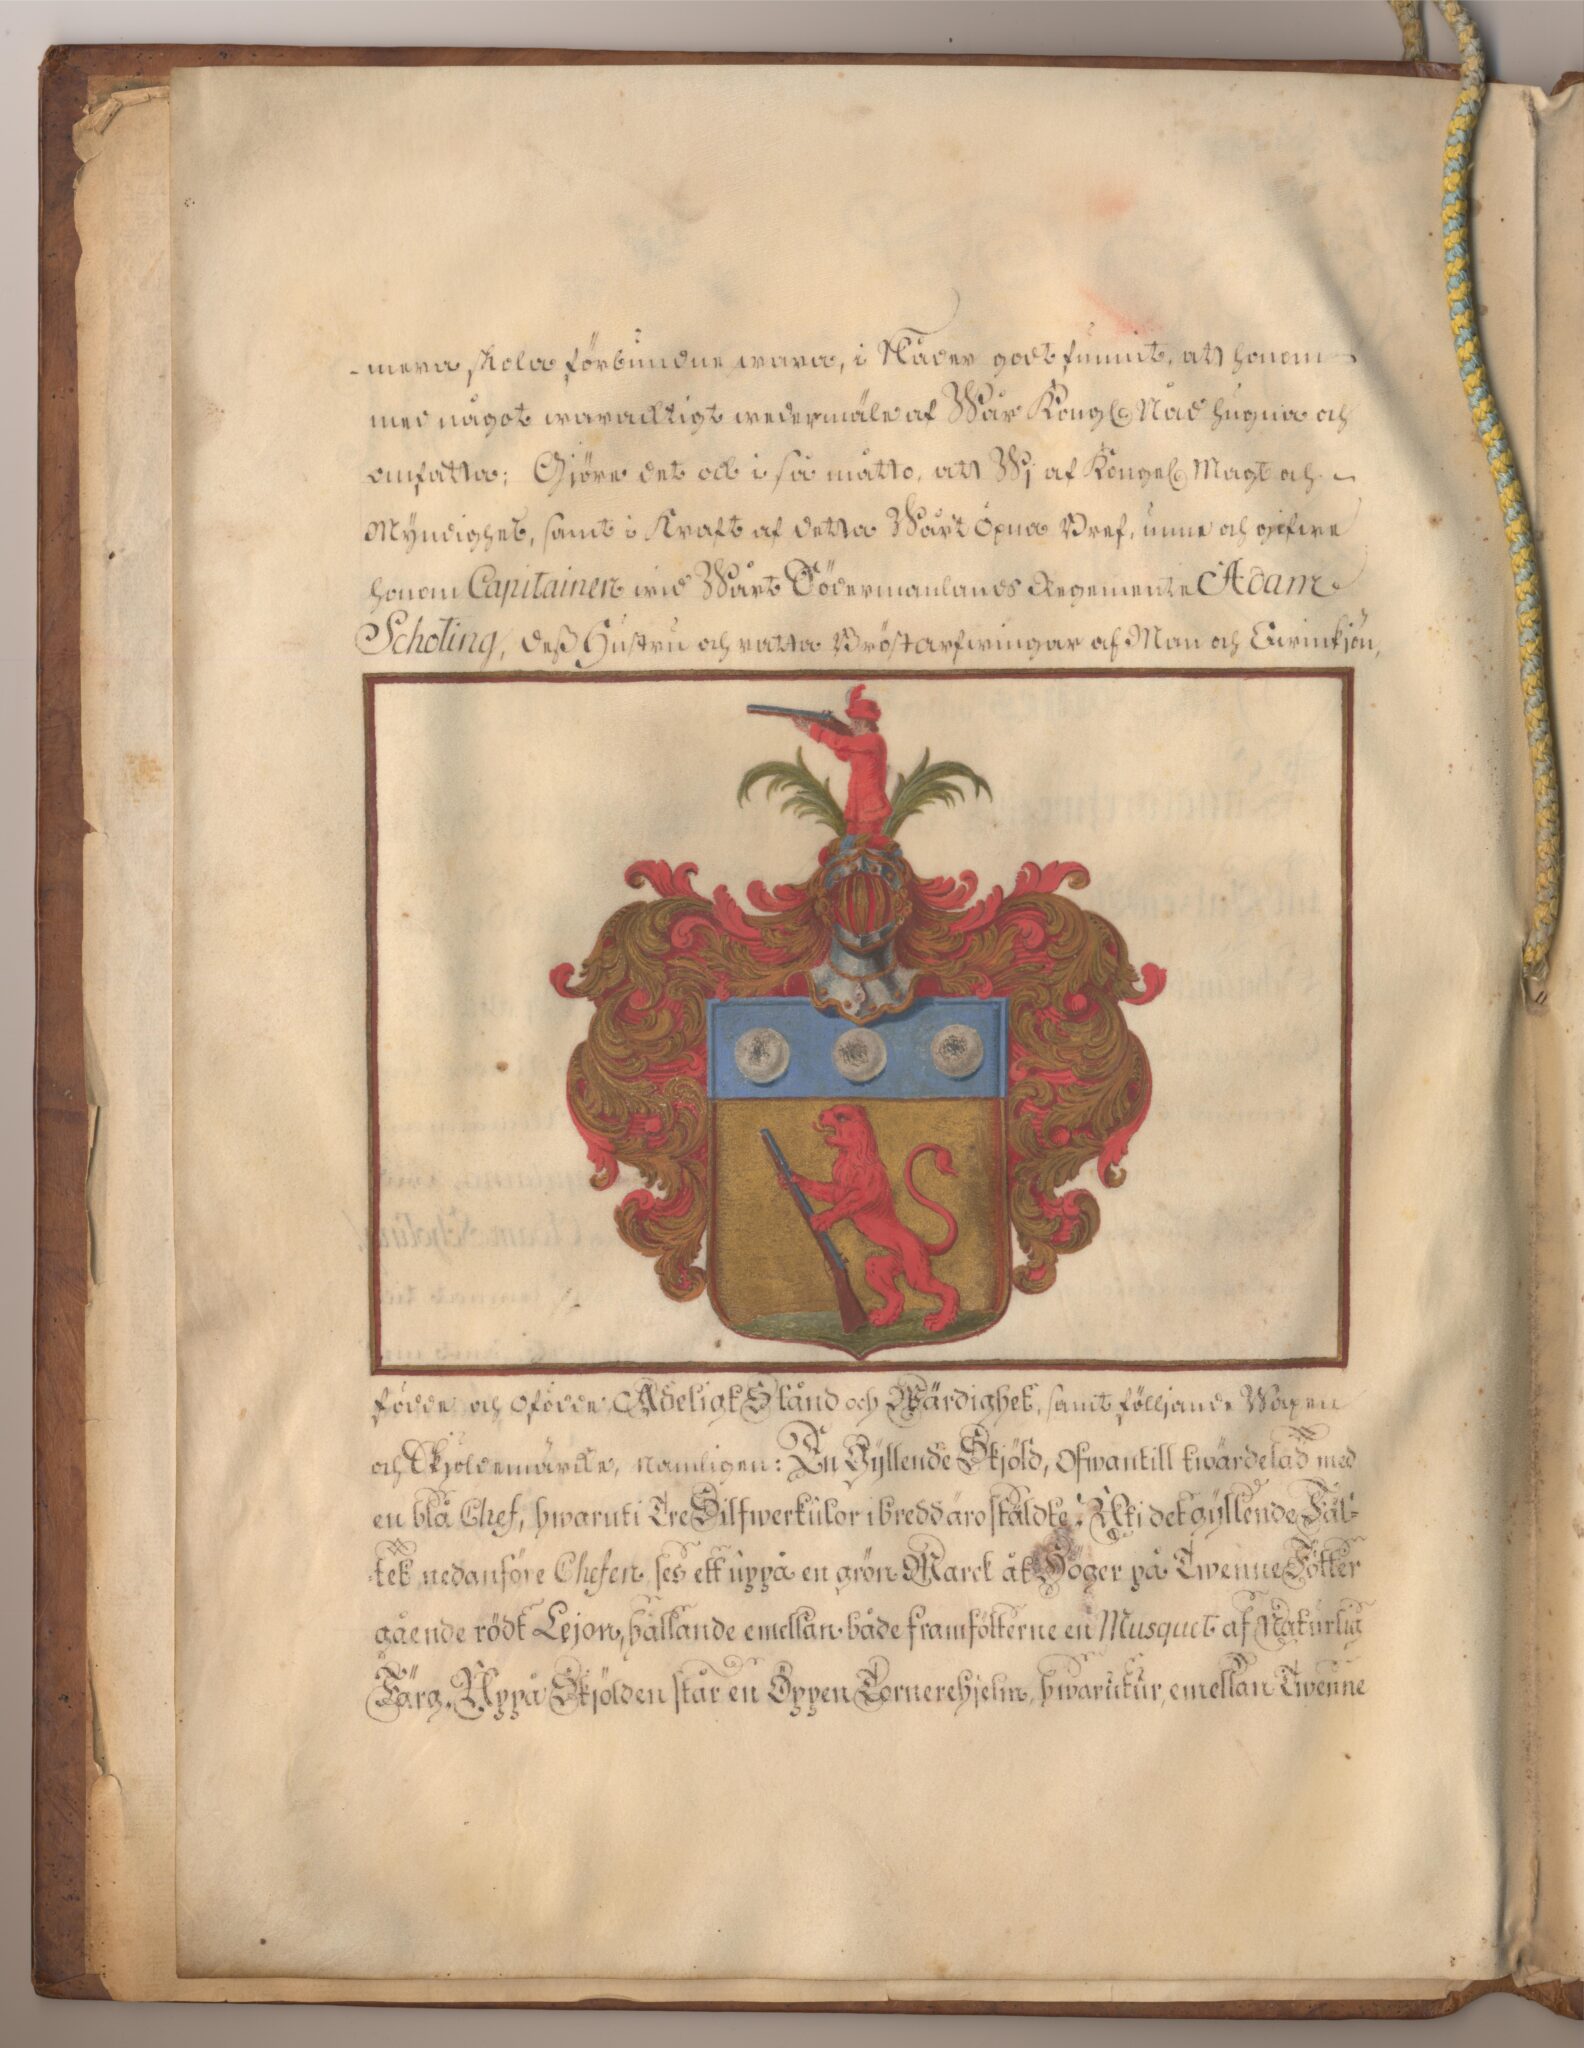 -mera skola förbundne wara, i Nåder godt funnit, att honom
med något warachtigt wedermäle af Wår Kongl. Nåd hugna och
omfatta; Gjöre det ock i så måtto, att Wj af Kongel. Magt och
Myndighet, samt i Kraft af detta Wårt öpna Bref, unne och gifwe
honom Capitainen wid Wårt Södermanlands Regemente Adam
Scholing, deß Hustru och rätta Bröstarfwingar af Man och Qwinkjön,
födde och ofödde Adeligt Stånd och Wärdighet, samt följjande Wapen
och Skjöldemärcke, nämligen: En Gyllende Skjöld, ofwantill twärdelad med
en blå Chef, hwaruti Tre Silfwerkulor i bredd äro stäldte; Uti det gyllende Fäl-
tet nedanföre Chefen ses ett uppå en grön Marck åt Höger på Twenne Fötter
gående rödt Lejon, hållande emellan både framfötterne en Musquet af Naturlig
Färg. Uppå Skjölden står en Öppen Tornerehjelm, hwarutur, emellan Twenne